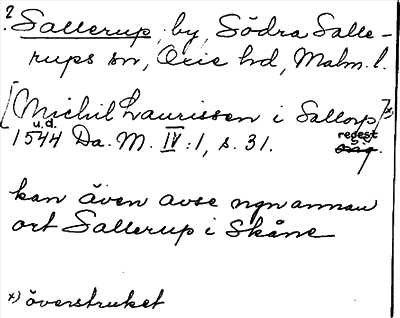 ? Sallerup, by, Södra Salle-
rups sn, Oxie hd, Malm. l.
[Michil Laurissen i Sallorp]x)
u.d.
1544 Da. M. IV:1, s. 31. regest
orig.
kan även avse ngn annan
ort Sallerup i Skåne
x) överstruket